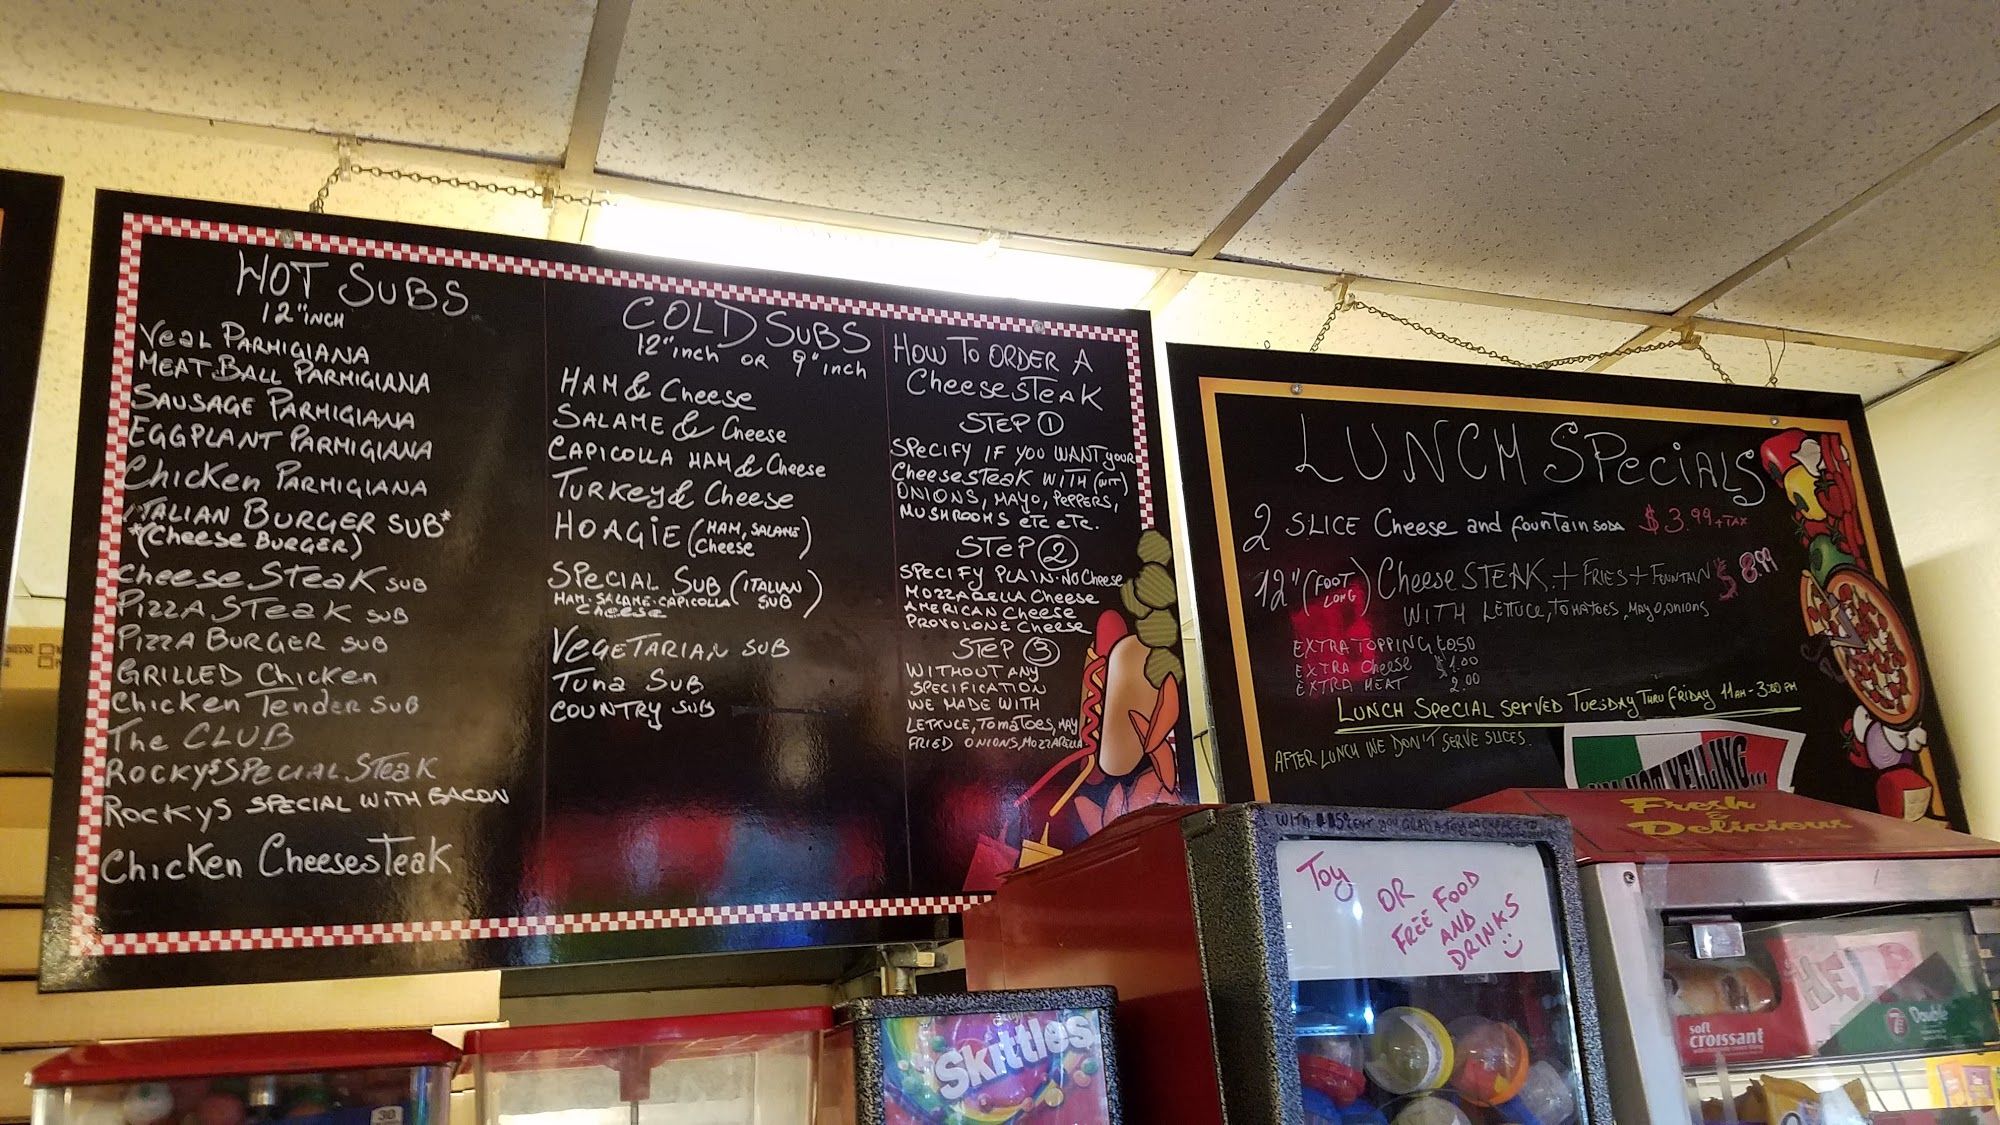 HOT SUBS
12" INCH
Veal PARMIGIANA
MEAT.BALL PARMIGIANA
SAUSAGE PARMIGIANA
EGGPLANT PARMIGIANA
Chicken PARMIGIANA
ITALIAN BURGER SUB*
*(Cheese BURGER)
Cheese.STeaK SUB
PIZZA.STeaK SUB
PIZZA BURGER SUB
GRILLED Chicken
Chicken Tender SUB
The CLUB
ROCKY'S SPECIAL.STeaK
ROCKYS SPECIAL WITH BACON
Chicken CheesesTeak
COLD SUBS
12" inch OR 9" inch
HAM & Cheese
SALAME & Cheese
CAPICOLLA HAM & Cheese
Turkey & Cheese
HOAGIE (HAM, SALAME
Cheese)
SPeciaL SUB (ITALIAN SUB)
HAM.SALAME.CAPICOLLA
Cheese
VEGETARIAN SUB
Tuna SUB
COUNTRY SUB
HOW TO ORDER A
CheesesTeaK
STEP 1
SPECIFY IF YOU WANT your
CheesesTeaK WITH (WIT)
ONIONS, MAYO, PEPPERS,
MUSHROOMS etc etc.
STEP 2
SPECIFY PLAIN-NO Cheese
MOZZARELLA Cheese
AMERICAN Cheese
PROVOLONE Cheese
STEP 3
WITHOUT ANY
SPECIFICATION
WE MADE WITH
LETTUCE, TOMATOES, MAY
FRIED ONIONS, MOZZARELLA
LUNCH SPeciALS
2 SLICE Cheese and fountain SODA $3.99 + TAX
12" (FOOT LONG) CheeseSTEAK + FRIES + FOUNTAIN $8.99
WITH LETTUCE, TOMATOES, MAYO, ONIONS
EXTRA TOPPING 0.50
EXTRA Cheese $1.00
EXTRA MEAT 2.00
LUNCH SPECIAL SERVED TUESDAY THRU FRIDAY 11AM - 3:00 PM
AFTER LUNCH WE DON'T SERVE SLICES.
NOT YELLING...
Fresh
&
Delicious
Toy
OR
FREE FOOD
AND
DRINKS
Skittles
soft
croissant
Double
30